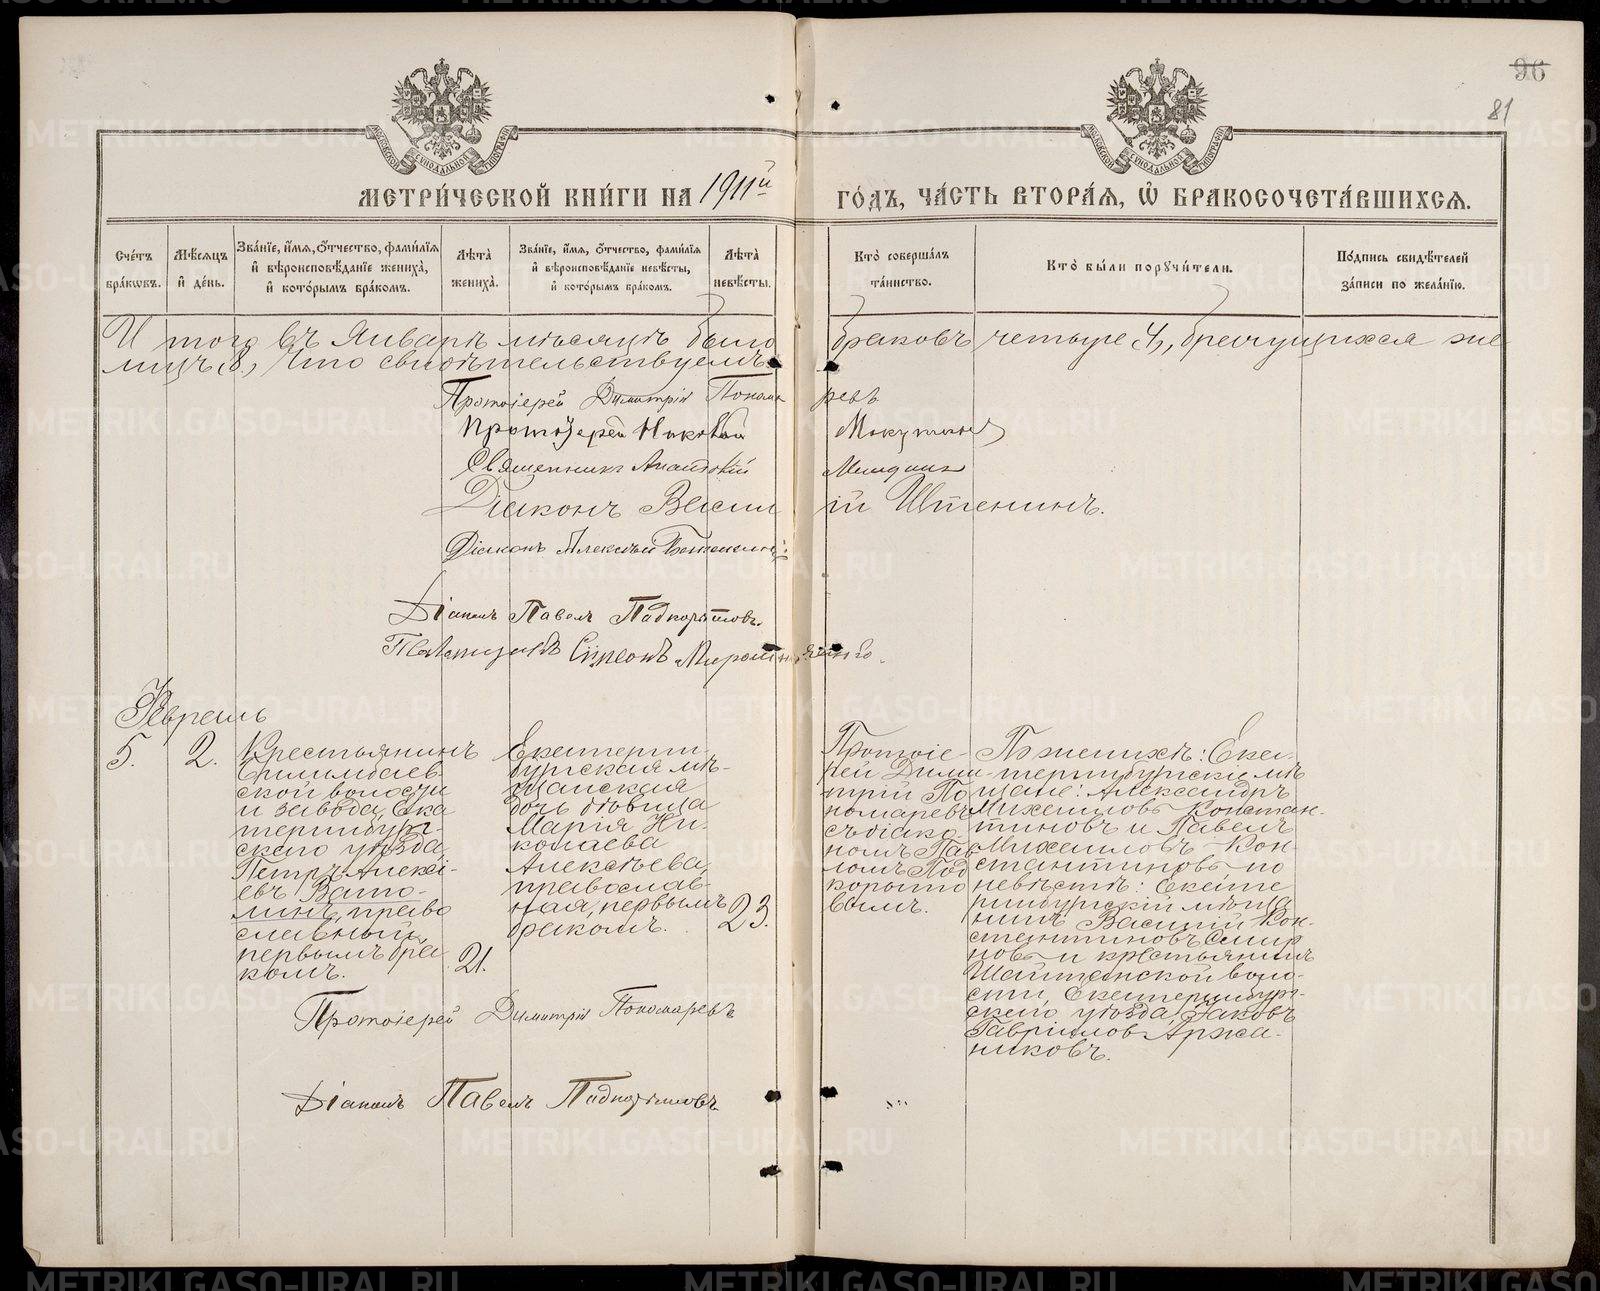 96
81
МЕТРИ́ЧЕСКОЙ КНИ́ГИ НА 1911й ГО́ДЪ, ЧА́СТЬ ВТОРА́Я, Ѡ҆ БРАКОСОЧЕТА́ВШИХСЯ.
Сче́тъ бра́ковъ.
Мѣ́сяцъ и҆ де́нь.
Зва́нїе, и҆́мя, ѻ҆́тчество, фами́лїя и҆ вѣроисповѣ́данїе жениха̀, и҆ кото́рымъ бра́комъ.
Лѣ́та̀ жениха̀.
Зва́нїе, и҆́мя, ѻ҆́тчество, фами́лїя и҆ вѣроисповѣ́данїе невѣ́сты, и҆ кото́рымъ бра́комъ.
Лѣ́та̀ невѣ́сты.
Кто̀ соверша́лъ та́инство.
Кто̀ бы́ли пору́чи́тели.
По́дпись свидѣ́телей за́писи по жела́нїю.
И того въ Январѣ мѣсяцѣ было браковъ четыре 4, брачущихся же
лицъ 8, Что свидѣтельствуемъ:
Протоіерей Димитрій Понома ревъ
Протоіерей Николай
Священникъ
Діаконъ Васил ій Штенинъ.
Діаконъ Алексѣй
Діаконъ Павелъ Подкорытовъ.
Псаломщикъ Сѵмеонъ
Февраль
5.
2.
Крестьянинъ
Билимбаев-
ской волости
и завода, Ека
теринбург-
скаго уѣзда
Петръ Алексѣ-
евъ Вато-
линъ, право
славный,
первымъ бра
комъ.
21.
Екатерин
бургская мѣ-
щанская
дочь дѣвица
Марія Ни-
колаева
Алексѣева,
православ-
ная, первымъ
бракомъ.
23.
Протоіе-
рей Дими
трій По
номаревъ
съ діако-
номъ Пав
ломъ Под
корыто
вымъ.
По женихѣ: Ека-
теринбургскіе мѣ
щане: Александръ
Михаиловъ Констан-
тиновъ и Павелъ
Михаиловъ Кон-
стантиновъ по
невѣстѣ: Екате
ринбургскій мѣща
нинъ Василій Кон-
стантиновъ Смир
новъ и крестьянинъ
Шайтанской воло-
сти, Екатеринбург-
скаго уѣзда, Іаковъ
Гавріиловъ Аржа-
никовъ.
Протоіерей Димитрій Пономаревъ
Діаконъ Павелъ Подкорытовъ
METRIKI.GASO-URAL.RU